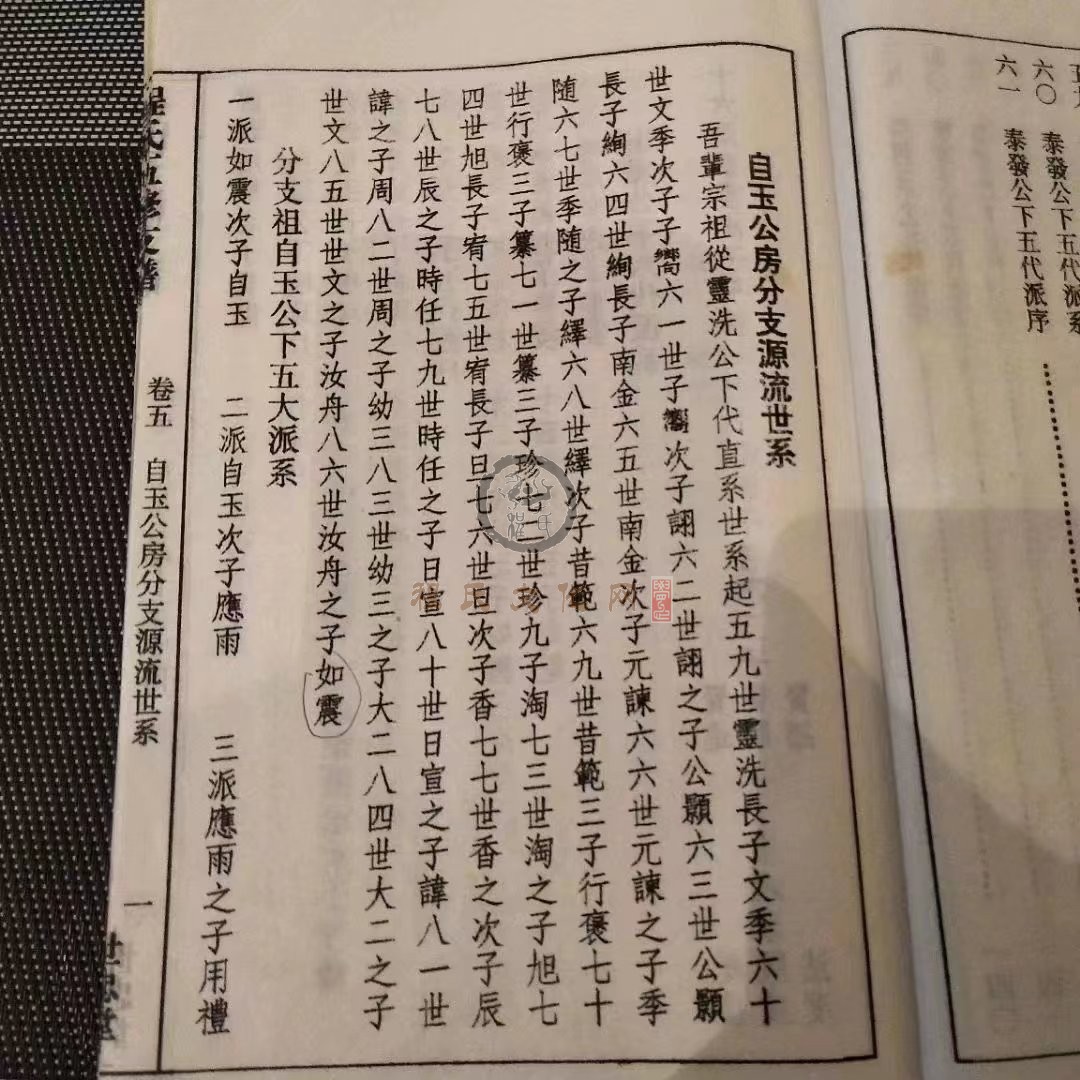 五九 泰發公下五代派系
六〇 泰發公下五代派系
六一 泰發公下五代派序
自玉公房分支源流世系
吾輩宗祖從靈洗公下代直系世系起五九世靈洗長子文季六十
世文季次子子嚮六一世子嚮次子詡六二世詡之子公顥六三世公顥
長子絢六四世絢長子南金六五世南金次子元諫六六世元諫之子季
随六七世季随之子繹六八世繹次子昔範六九世昔範三子行褒七十
世行褒三子纂七一世纂三子珍七二世珍九子淘七三世淘之子旭七
四世旭長子宥七五世宥長子旦七六世旦次子香七七世香之次子辰
七八世辰之子時任七九世時任之子日宣八十世日宣之子諱八一世
諱之子周八二世周之子幼三八三世幼三之子大二八四世大二之子
世文八五世世文之子汝舟八六世汝舟之子如震
分支祖自玉公下五大派系
一派如震次子自玉 二派自玉次子應雨 三派應雨之子用禮
程氏五修支譜 卷五 自玉公房分支源流世系 一 世忠堂
程氏文化网